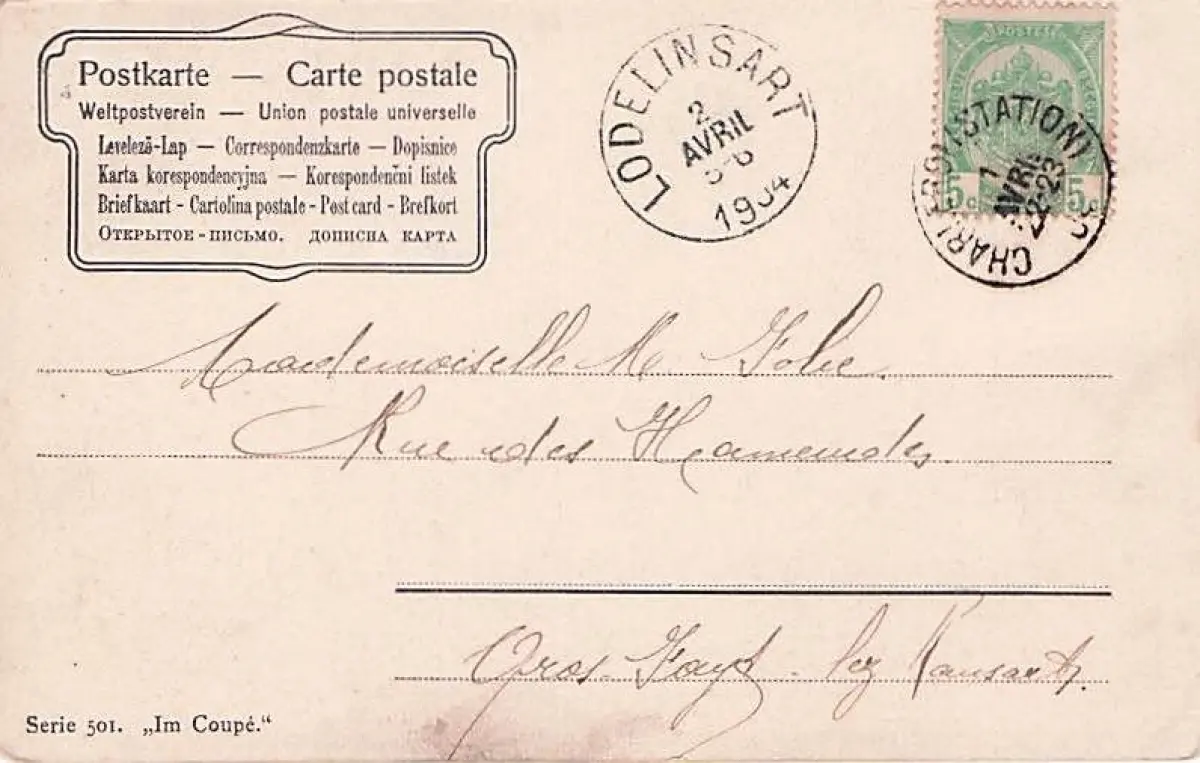 Postkarte — Carte postale
Weltpostverein — Union postale universelle
Levelező-Lap — Correspondenzkarte — Dopisnice
Karta korespondencyjna — Korespondenčni listek
Briefkaart - Cartolina postale - Post card - Brefkort
Открытое-письмо. дописна карта
LODELINSART
2
AVRIL
5-6
1904
POSTES
5c 5c
CHARLEROI (STATION)
1
AVRIL
22-23
Mademoiselle M
Rue des Hamendes.
Gros-Fayt - lez Ransart.
Serie 501. „Im Coupé.“